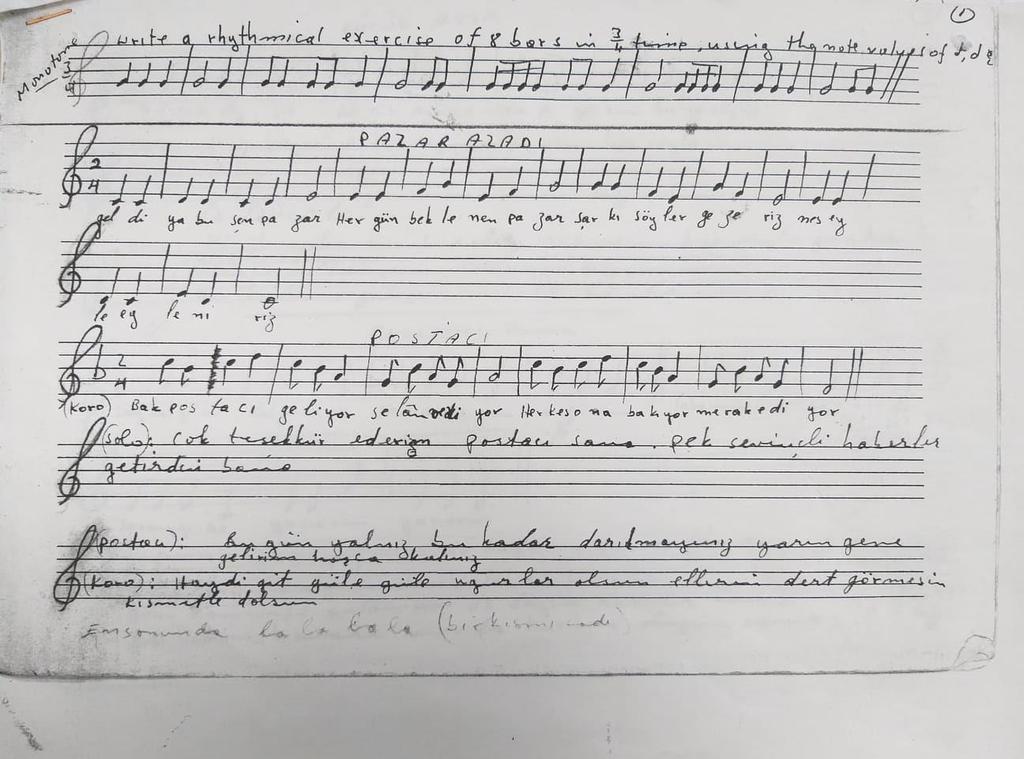 1
Write a rhythmical exercise of 8 bars in 3/4 time, using the note values of
Monotone
3 4
PAZAR AZADI
2 4
gel di ya bu şen pa zar Her gün bek le nen pa zar şar kı söy ler ge ze riz neş ey
le ey le ni riz
POSTACI
2 4
(Koro) Bak pos ta cı geliyor selam veri yor Herkes ona bakıyor merak edi yor
(Solo): Cok teşekkür ederim postacı sana. pek sevinçli haberler
getirdin bana
(postacı): Bu gün yalnız bu kadar darılmayınız yarın gene
gelirim hoşça
(Koro): Haydi git güle güle uğurlar olsun ellerin dert görmesin
kısmetle dolsun
En sonunda la la la la